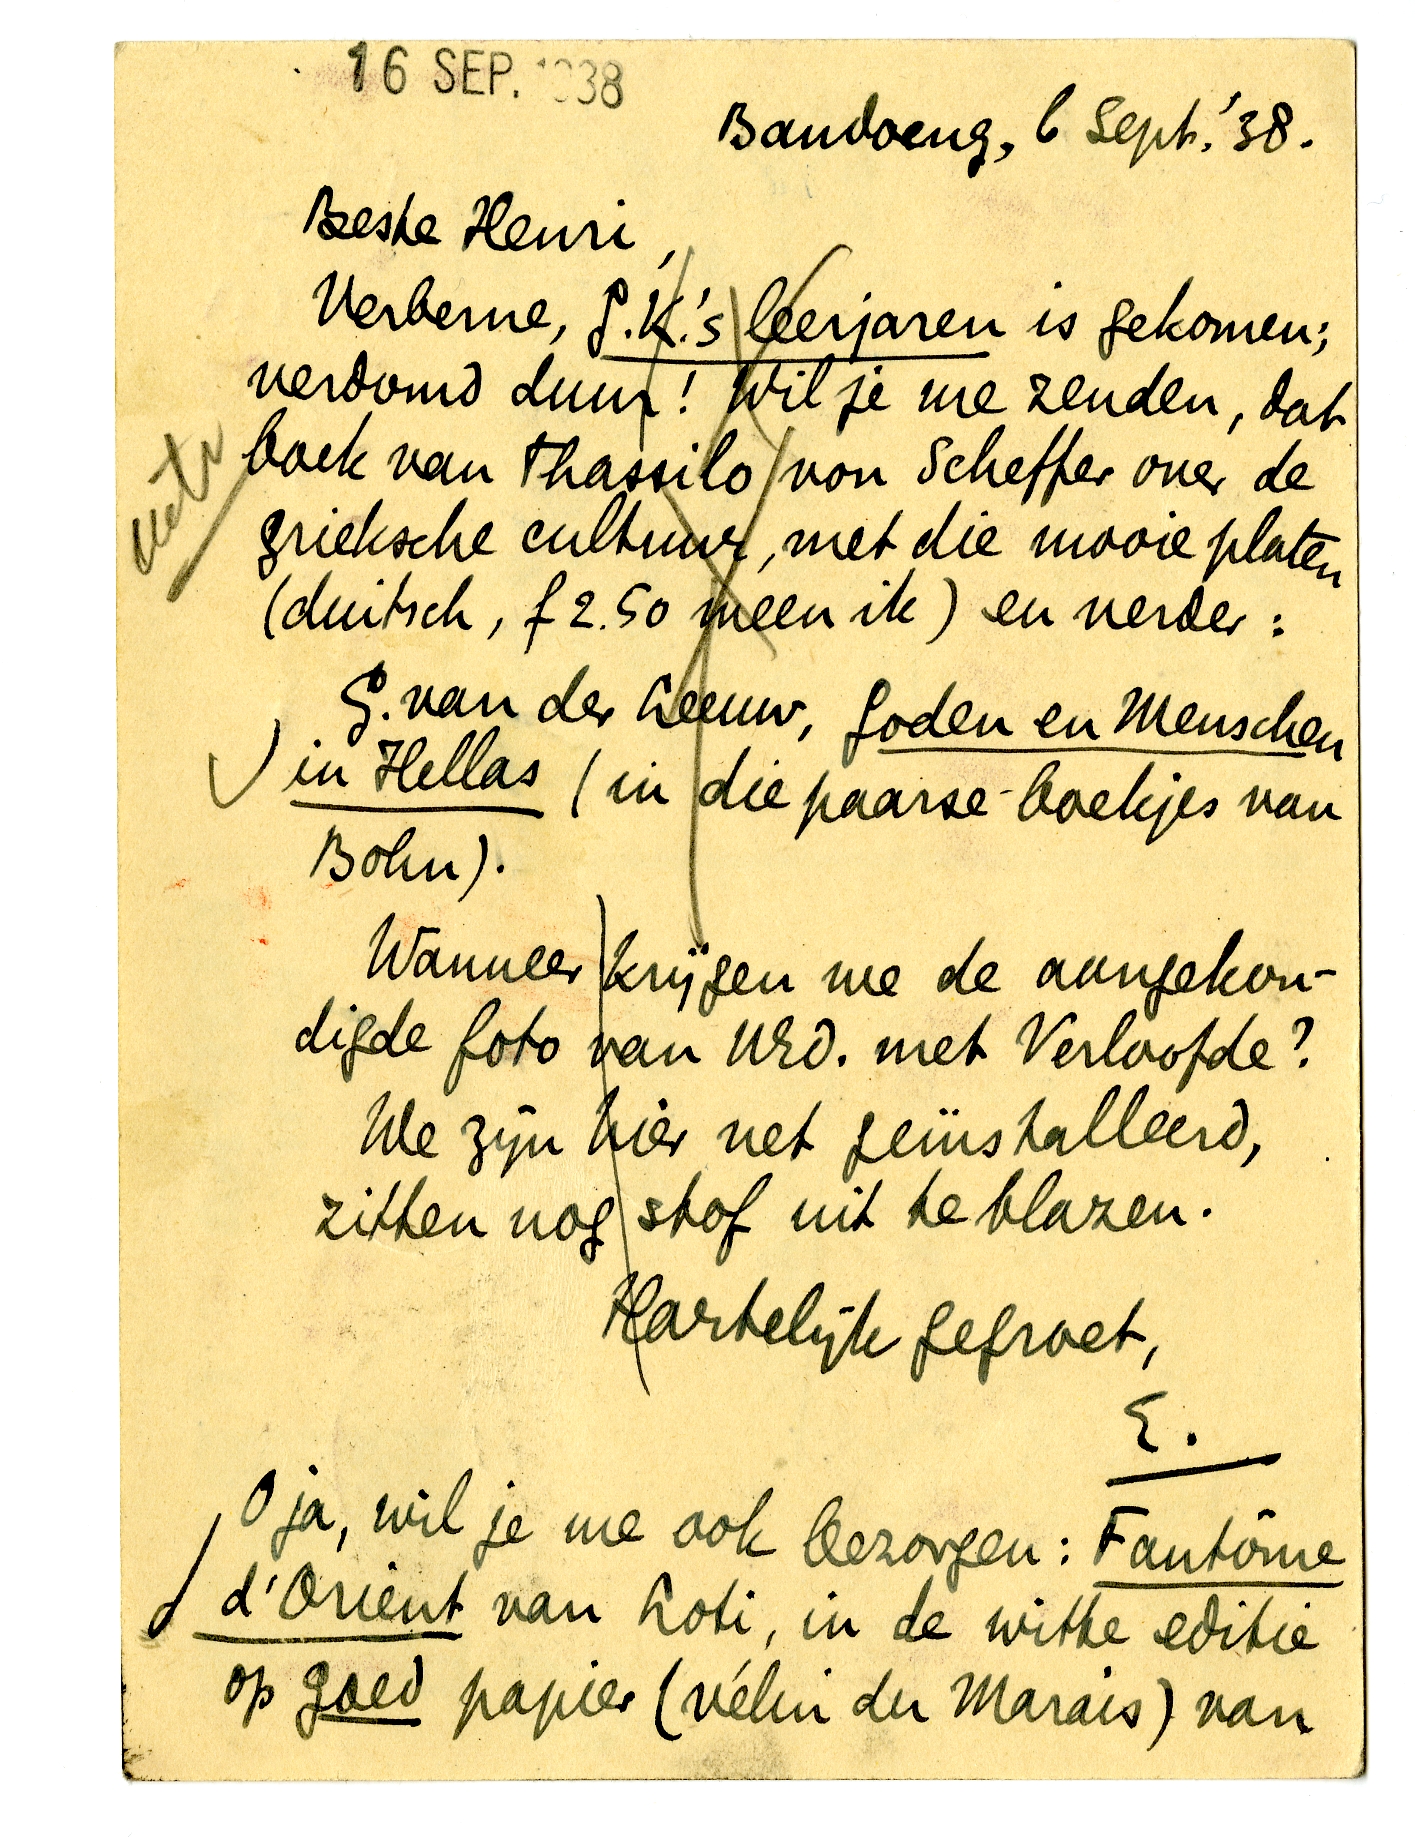 16 SEP. 1938
Bandoeng, 6 Sept. '38.
Beste Henri,
Verberne, G.K.'s leerjaren is gekomen;
verdomd duur! Wil je me zenden, dat
boek van Thassilo von Scheffer over de
grieksche cultuur, met die mooie platen
(duitsch, f 2.50 meen ik) en verder:
G. van der Leeuw, Goden en Menschen
in Hellas (in die paarse boekjes van
Bohn).
Wanneer krijgen we de aangekon-
digde foto van WED. met Verloofde?
We zijn hier net geïnstalleerd,
zitten nog stof uit te blazen.
Hartelijk gegroet,
E.
O ja, wil je me ook bezorgen: Fantôme
d'Orient van Loti, in de witte editie
op goed papier (vélin du Marais) van